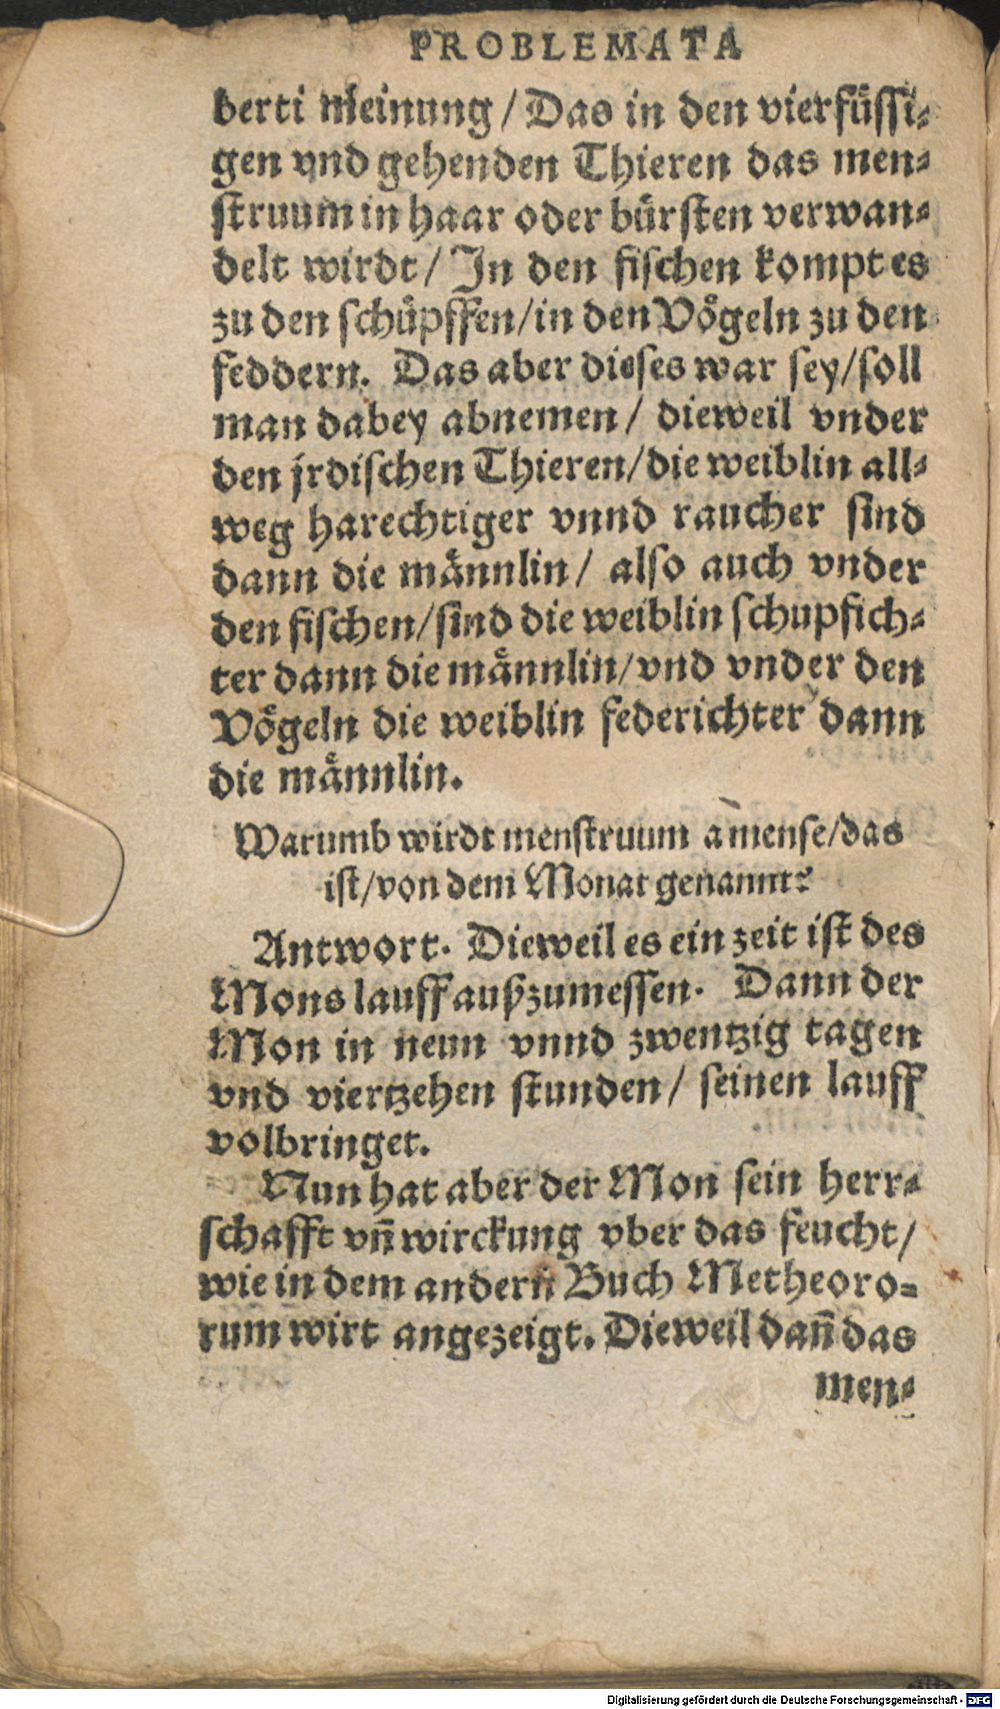 PROBLEMATA
berti meinung / Das in den vierfüssi-
gen vnd gehenden Thieren das men-
struum in haar oder bürsten verwan-
delt wirdt / In den fischen kompt es
zu den schüpffen / in den Vögeln zu den
feddern. Das aber dieses war sey / soll
man dabey abnemen / dieweil vnder
den jrdischen Thieren / die weiblin all-
weg harechtiger vnnd raucher sind
dann die männlin / also auch vnder
den fischen / sind die weiblin schupfich-
ter dann die männlin / vnd vnder den
Vögeln die weiblin federichter dann
die männlin.
Warumb wirdt menstruum à mense / das
ist / von dem Monat genannt?
Antwort. Dieweil es ein zeit ist des
Mons lauff außzumessen. Dann der
Mon in neun vnnd zwentzig tagen
vnd viertzehen stunden / seinen lauff
volbringet.
Nun hat aber der Mon sein herr-
schafft vñ wirckung vber das feucht /
wie in dem andern Buch Metheoro-
rum wirt angezeigt. Dieweil dañ das
men-
Digitalisierung gefördert durch die Deutsche Forschungsgemeinschaft - DFG